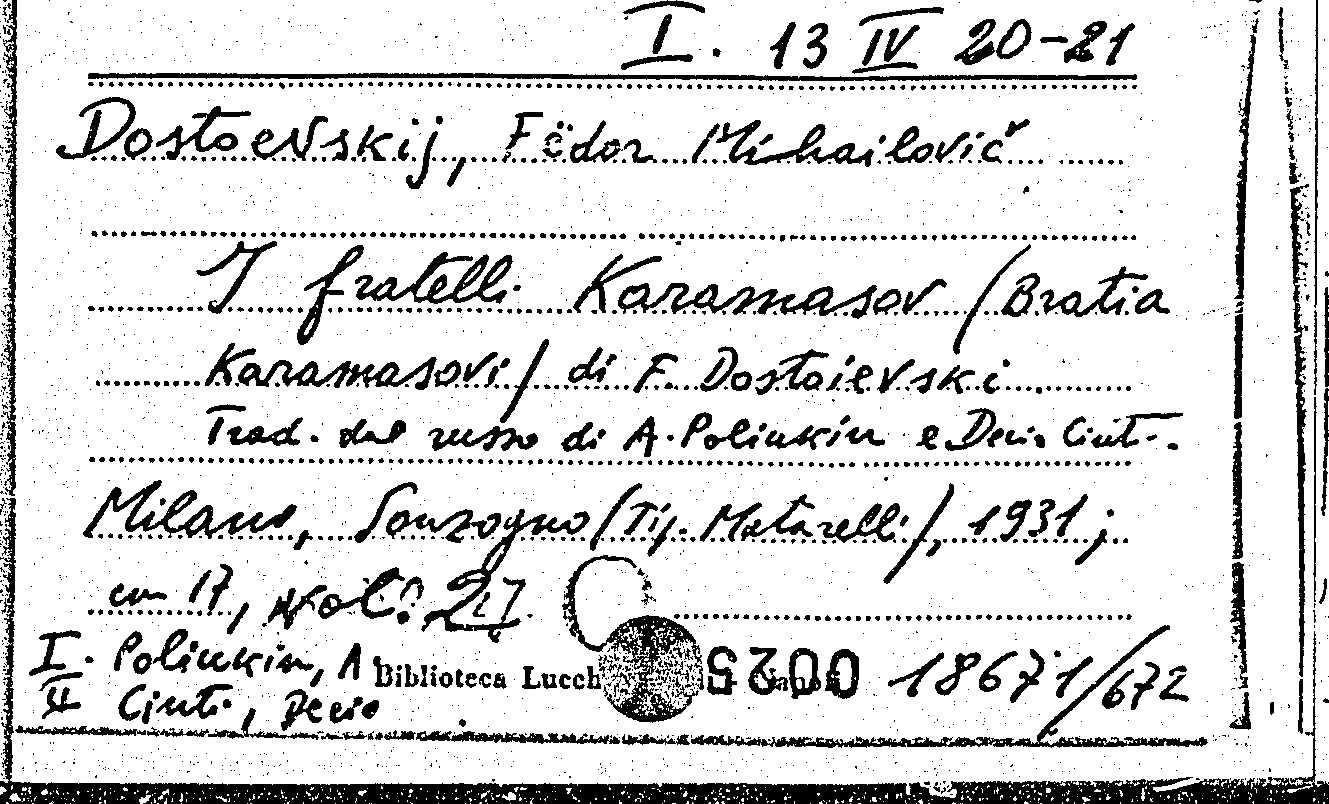 I. 13 IV 20-21
Dostoevskij, Fëdor Mihailovič
I fratelli Karamasov (Bratia
Karamasovi) di F. Dostoievski.
Trad. dal russo di A. Poliukin e Decio Cinti.
Milano, Sonzogno (Tip. Matarelli), 1931;
cm 17, vol. 2
I. Poliukin, A.
Biblioteca Lucch
0025
18671/672
II Cinti, Decio